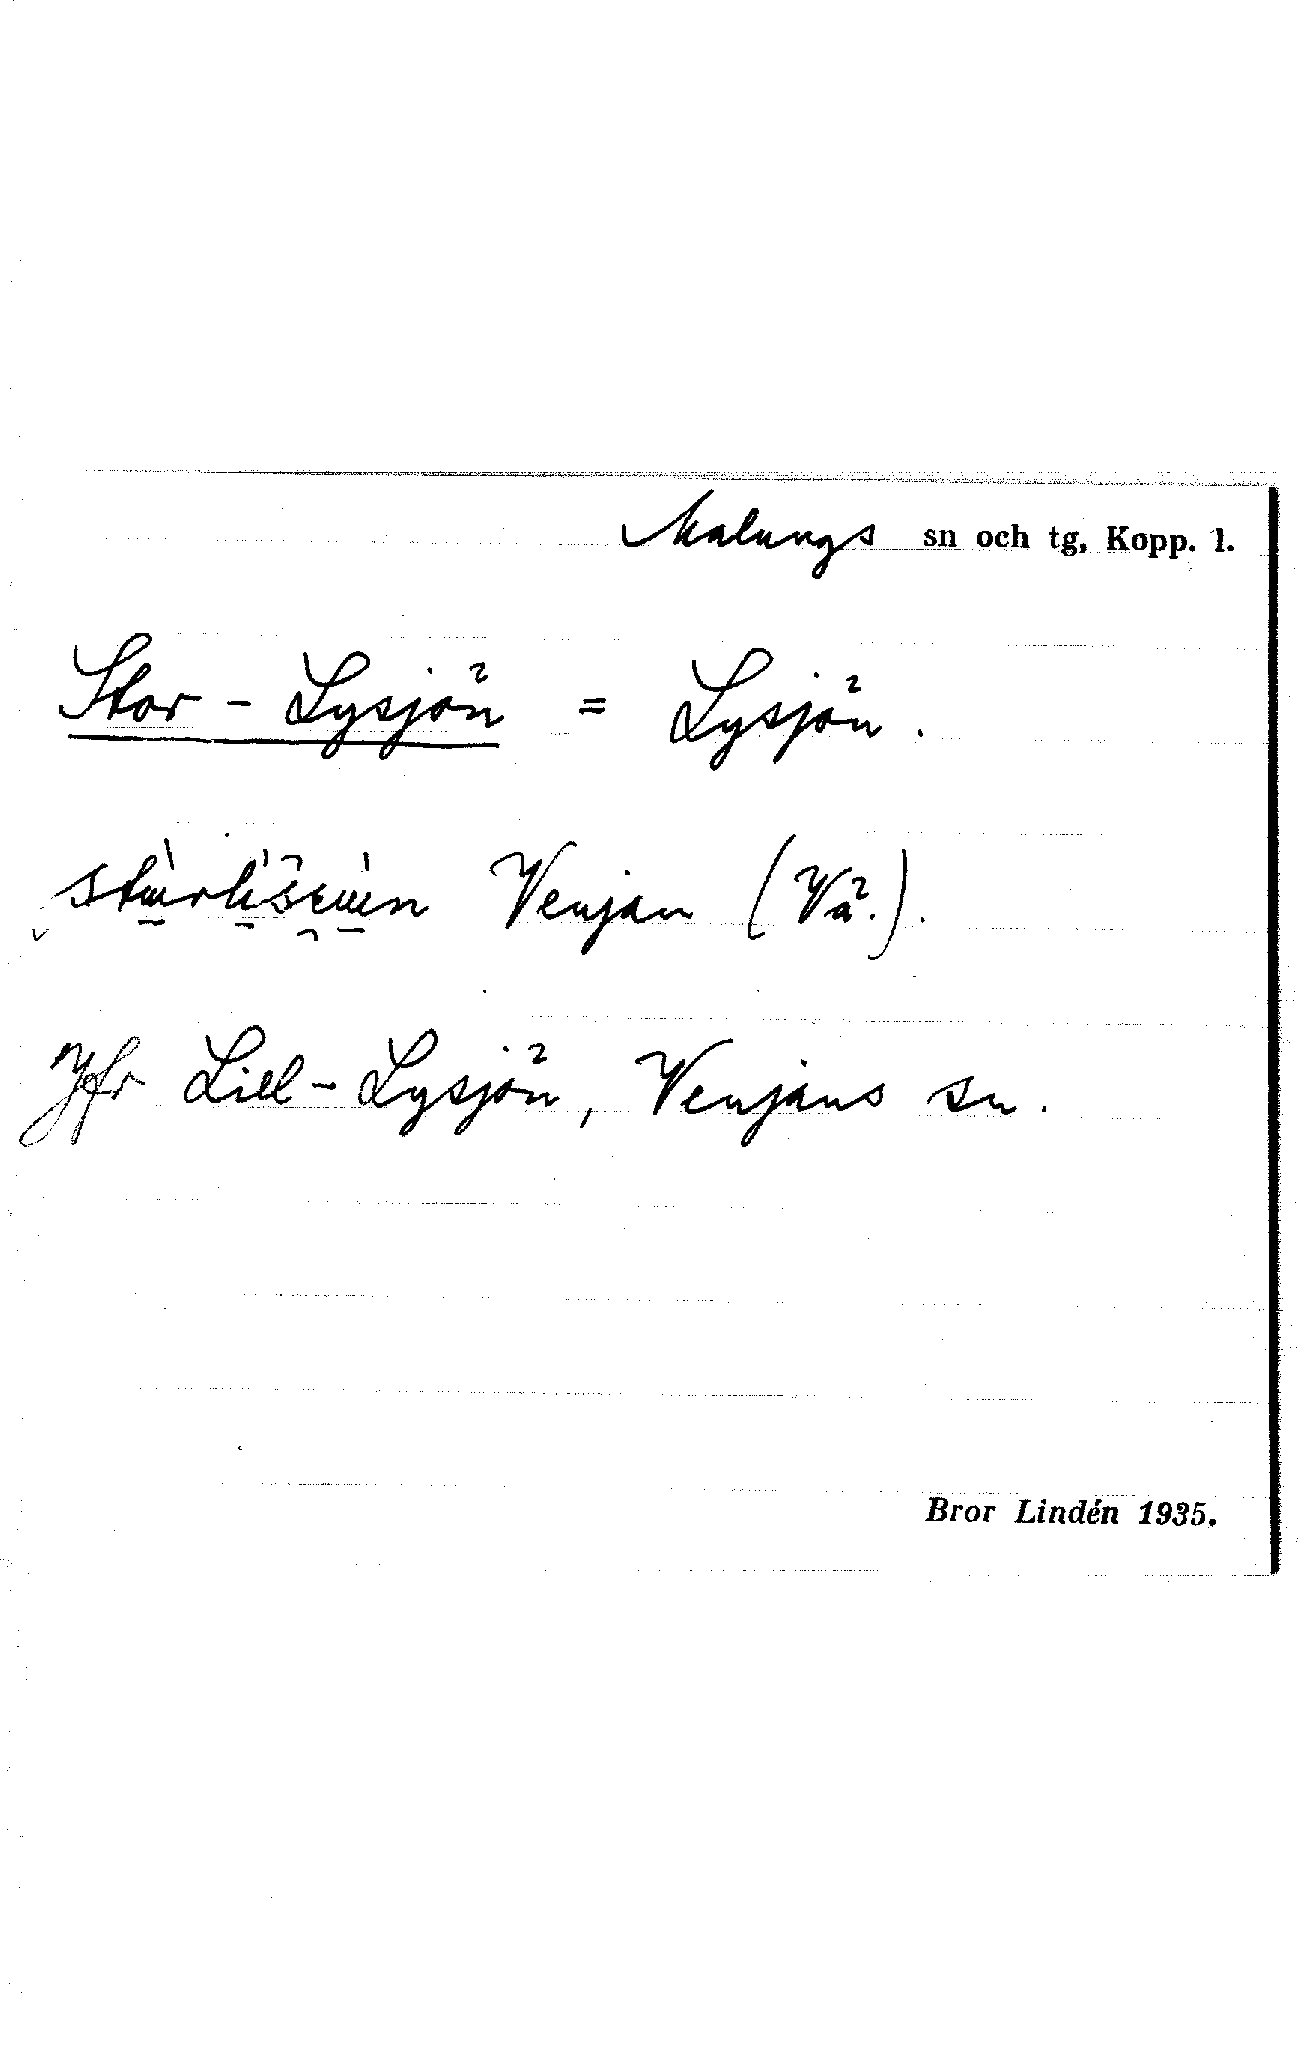 Malungs sn och tg, Kopp. l.
Stor-Lysjön = Lysjön.
Venjan (Vå.).
Jfr Lill-Lysjön, Venjans sn.
Bror Lindén 1935.